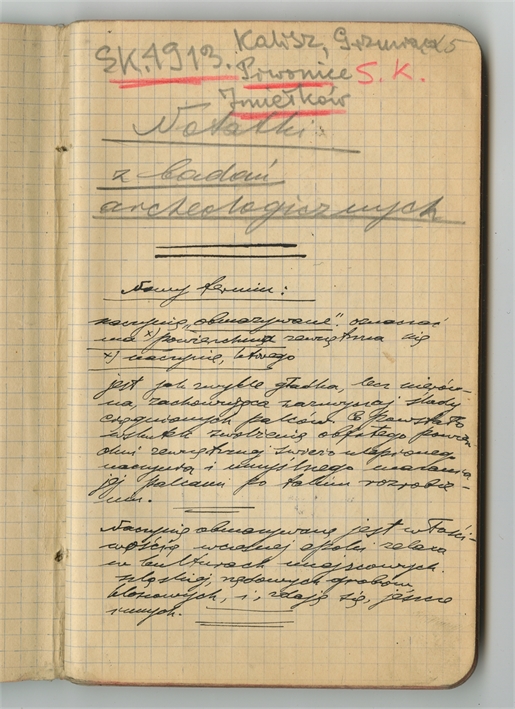 SK.1913. Kalisz,
Piwonice S. K.
Notatki
z badań
archeologicznych
Nowy termin:
naczynie „obmazywane". oznaczać
ma x) powierzchnię zewnętrzna się
x) naczynie, którego
jest jak zwykle gładka, lecz nierów-
na, zachowująca zazwyczaj ślady
ciągnionych palców. Co powstało
wskutek zwilżenia obfitego powierz-
chni zewnętrznej świeżo ulepionego
naczynia i umyślnego mazania
jej palcami po takim rozrobie-
niu.
Naczynie obmazywane jest właści-
wością wczesnej epoki żelaza
w kulturach miejscowych.
śląskiej, rzędowych grobów
kloszowych, i, zdaje się, jeszcze
innych.